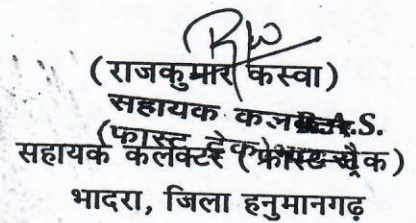 (राजकुमार कस्वा)
सहायक कलक्टर R.A.S.
(फास्ट ट्रेक)
सहायक कलक्टर (फास्ट ट्रैक)
भादरा, जिला हनुमानगढ़